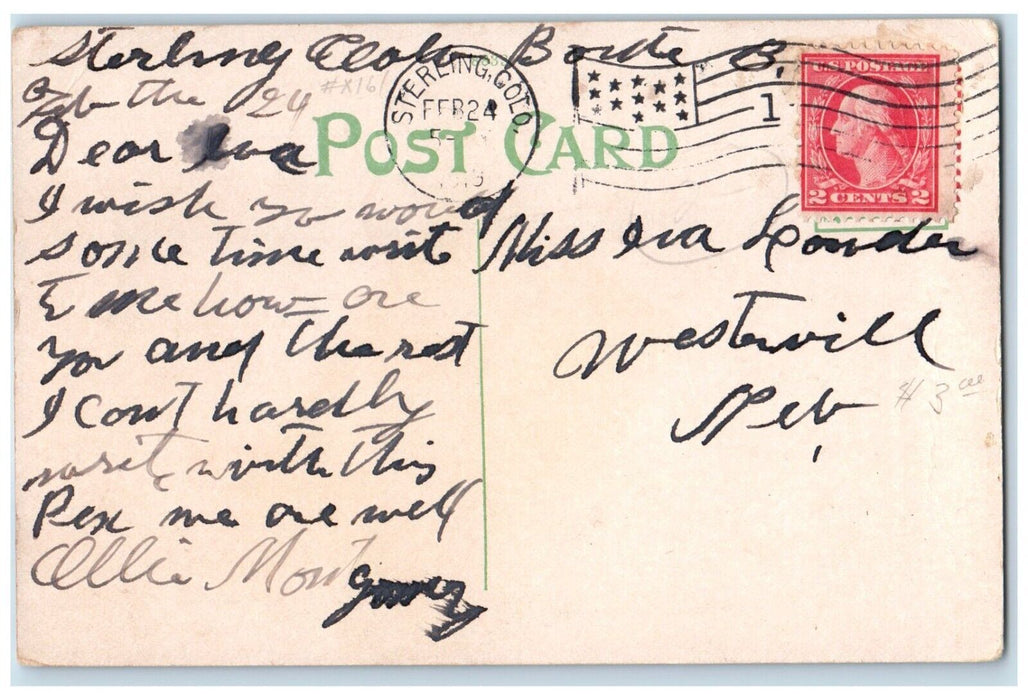 Sterling Colo Route B.
Feb the 24
#X161
Dear Iva
I wish yo would
some time writ
to me how are
you and the rest
I cant hardly
writ with this
Pen me are well
Ollie Montgomery
POST CARD
STERLING, COLO.
FEB 24
1
U.S. POSTAGE
2 CENTS 2
Miss Iva Lowder
Westervill
Neb
#3